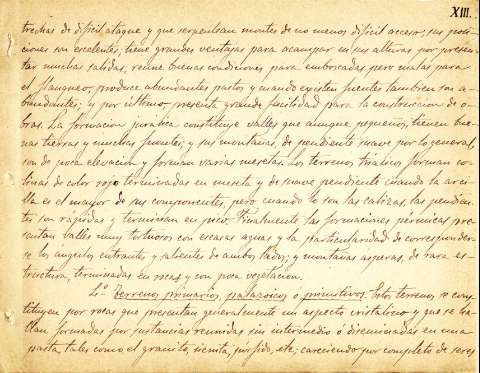 XIII.
trechas de difícil ataque y que serpentean montes de no menos difícil acceso; sus posi-
ciones son escelentes; tiene grandes ventajas para acampar en sus alturas por presen-
tar muchas salidas, reune buenas condiciones para emboscadas pero malas para
el flanqueo, produce abundantes pastos y cuando existen fuentes tambien son a-
bundantes; y por último, presenta grande facilidad para la construccion de o-
bras. La formacion jurásica constituye valles que aunque pequeños, tienen bue-
nas tierras y muchas fuentes; y sus montañas, de pendiente suave por lo general,
son de poca elevacion y forman varias mesetas. Los terrenos triásicos forman co-
linas de color rojo terminadas en meseta y de suave pendiente cuando la arci-
lla es el mayor de sus componentes, pero cuando lo son las calizas, las pendien-
tes son rápidas y terminan en pico. Finalmente las formaciones pérmicas pre-
sentan valles muy tortuosos con escasas aguas y la particularidad de corresponder-
se los ángulos entrantes y salientes de ambos lados; y montañas asperas, de rara es-
tructura, terminadas en rocas y con poca vegetacion.
4.º Terreno primario, paleozoico ó primitivo. Estos terrenos se cons-
tituyen por rocas que presentan generalmente un aspecto cristalino y que se ha-
llan formadas por sustancias reunidas sin intermedio ó diseminadas en una
pasta, tales como el granito, sienita, pórfido, etc; careciendo por completo de seres